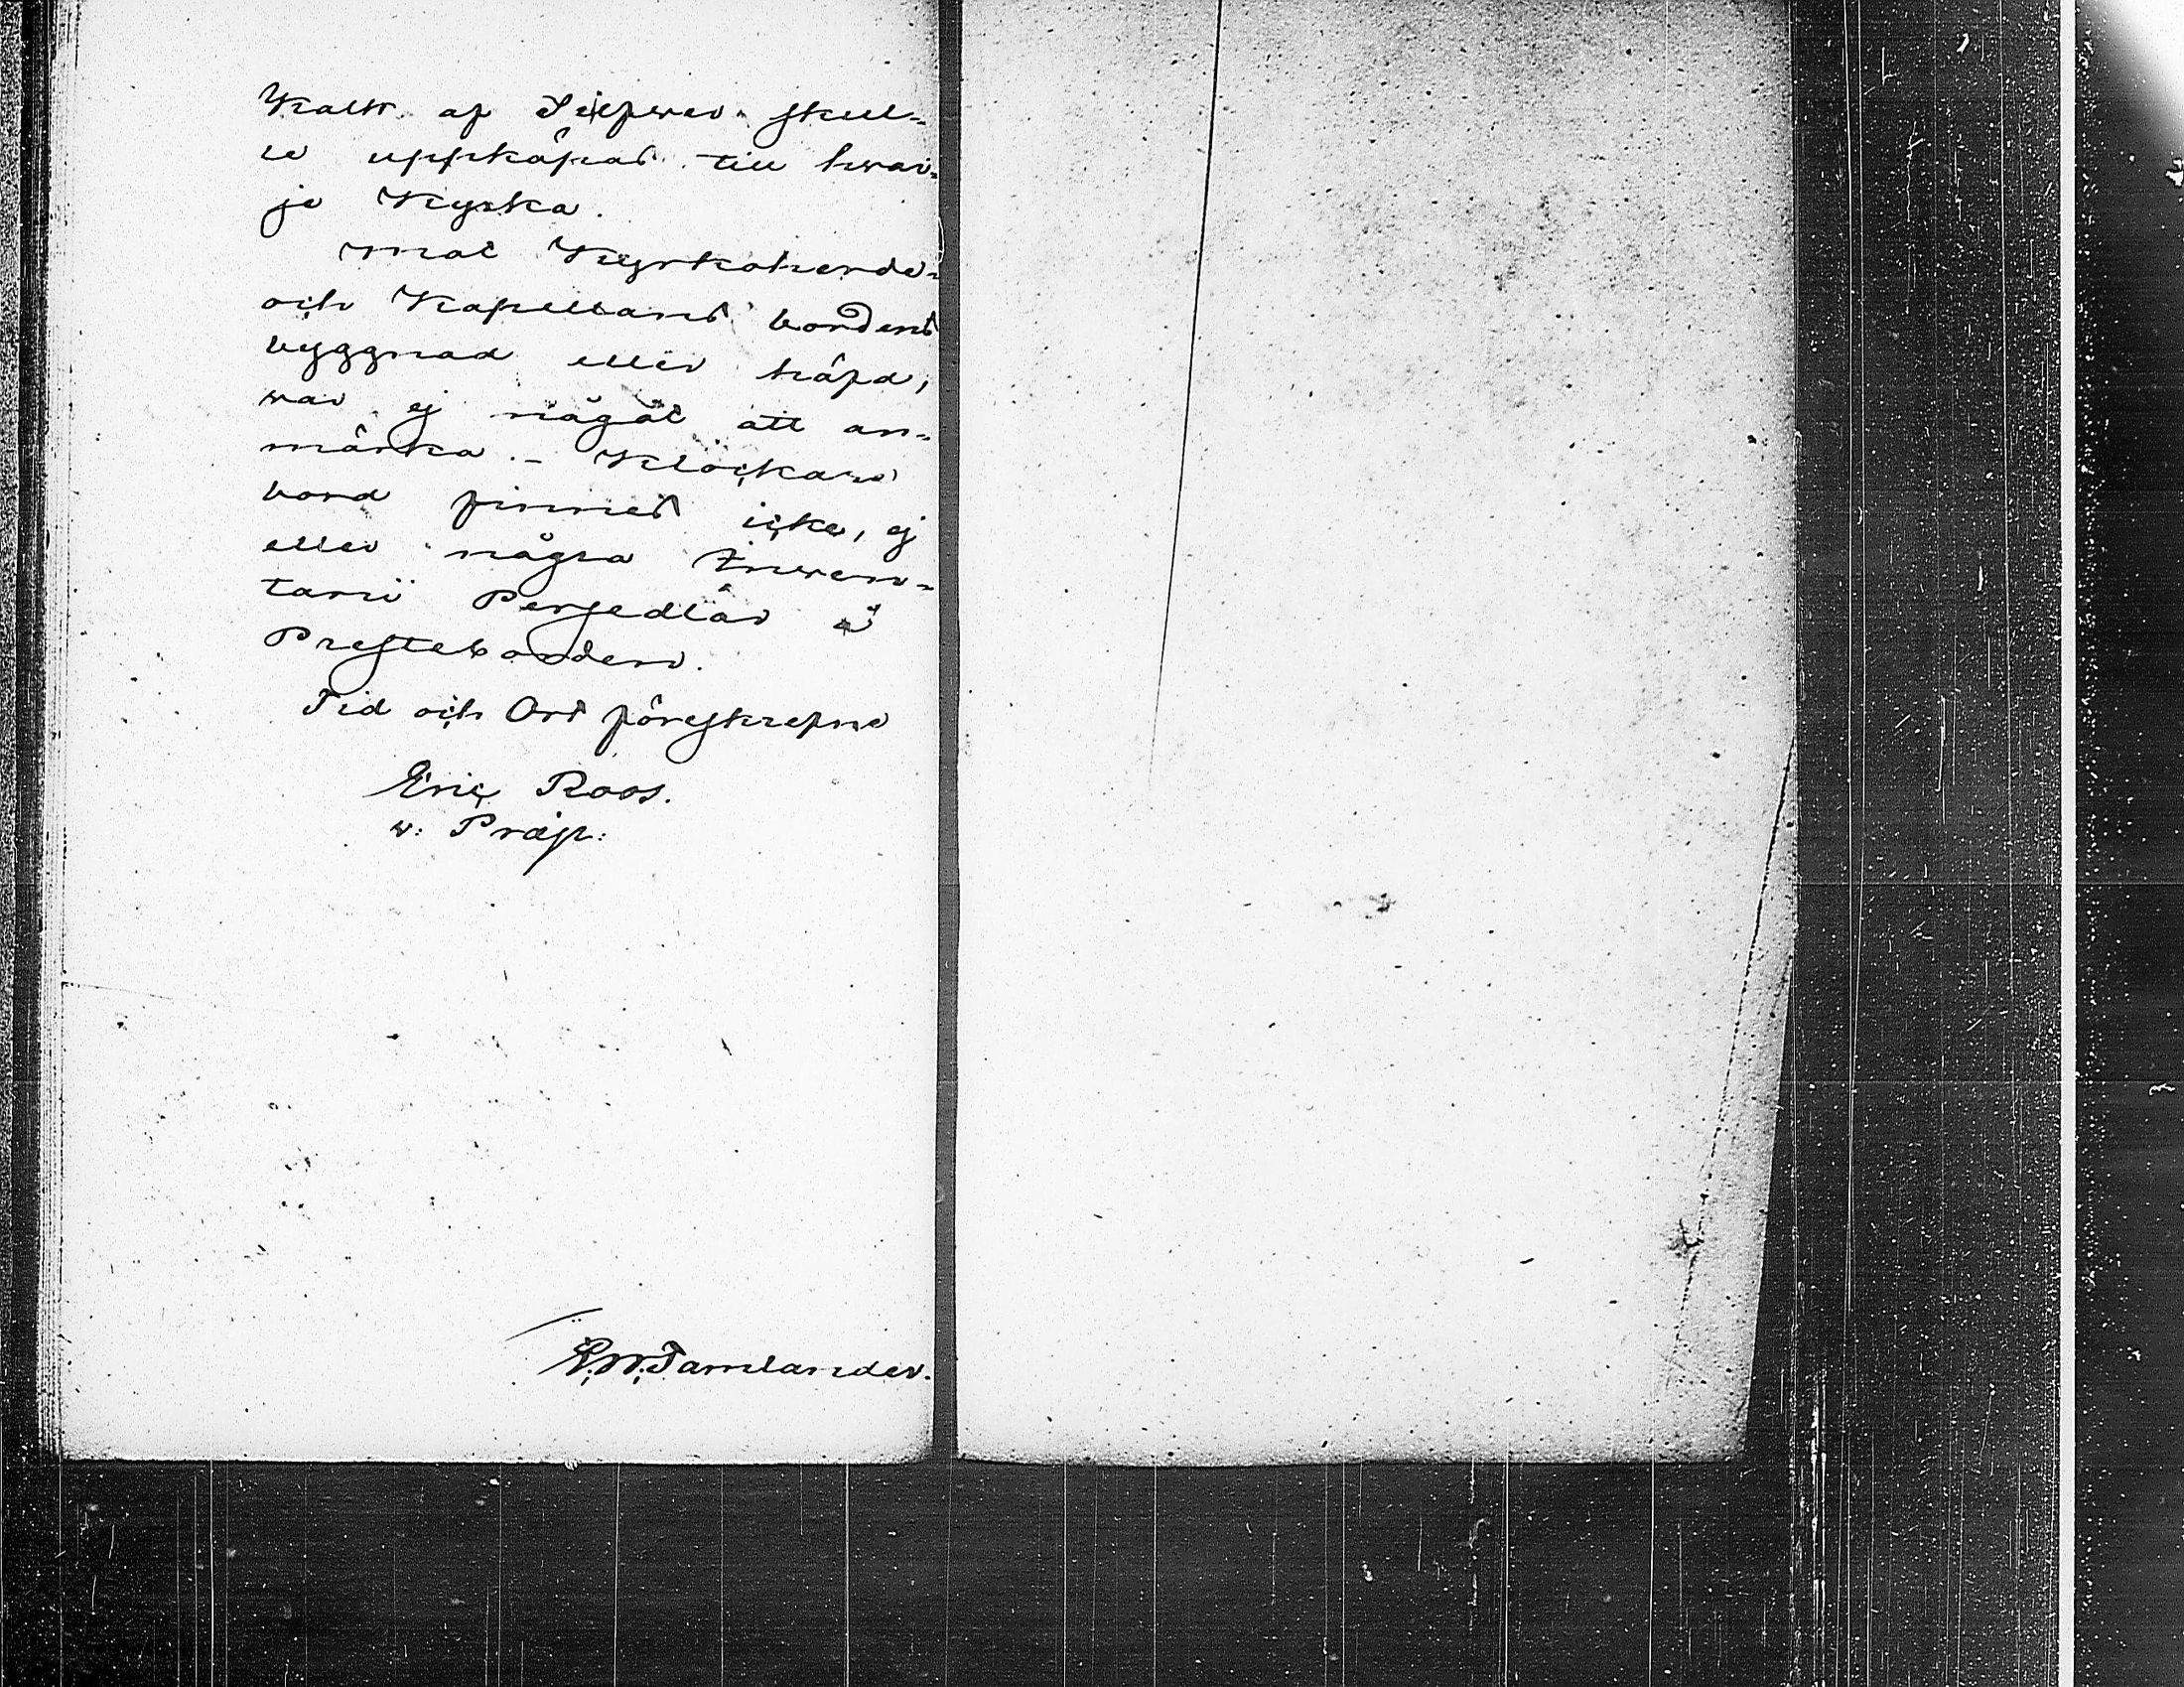 Kalk af Silfwer skul-
le uppköpas till hwar-
je Kyrka.
mot Kyrkoherde-
och Kapellans bordens
byggnad eller häfd,
war ej något att an-
märka. - Klockare
bord finnes icke, ej
eller några Inwen-
tarii Persedlar å
Presteborden.
Tid och Ort föreskrefne
Eric Roos.
v: Præp:
E. W. Tamlander.